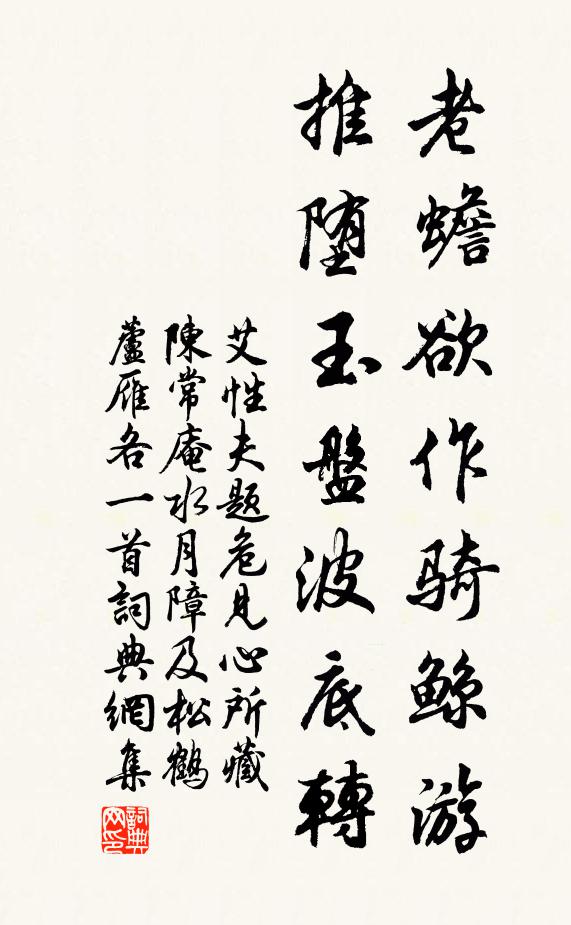 老蟾欲作騎鯨游
推堕玉盤波底轉
艾性夫題危見心所藏
陳常庵水月障及松鶴
蘆雁各一首詞典網集
詞典
网印